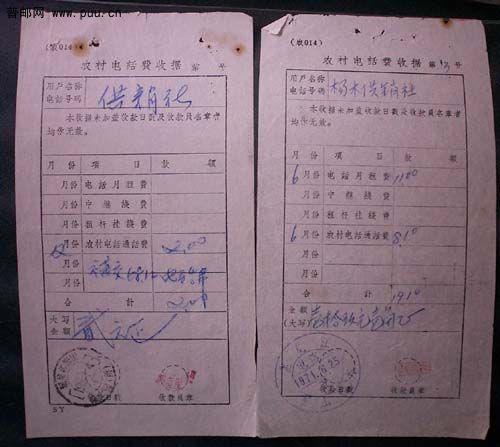 普邮网 www.puu.cn
(农014)
农村电话费收据 第 号
用户名称
电话号码 供销社
本收据未加盖收款日戳及收款员名章者
均作无效。
月份 项目 款额
月份 电话月租费
月份 中继线费
月份 租杆挂线费
月份 农村电话通话费 2.00
月份
月份
合计 2.00
大写
金额 贰元正
收款日戳 收款员章
SY
(农014)
农村电话费收据 第 号
用户名称
电话号码 杨木供销社
本收据未加盖收款日戳及收款员名章者
均作无效。
月份 项目 款额
6月份 电话月租费 11.00
月份 中继线费
月份 租杆挂线费
6月份 农村电话通话费 8.10
月份
月份
合计 19.10
金额
(大写) 壹拾玖元壹角正
1971.6.25
收款日戳 收款员章